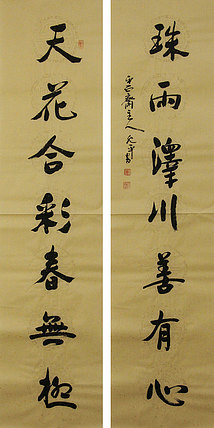 珠雨澤川善有心
天花合彩春無極